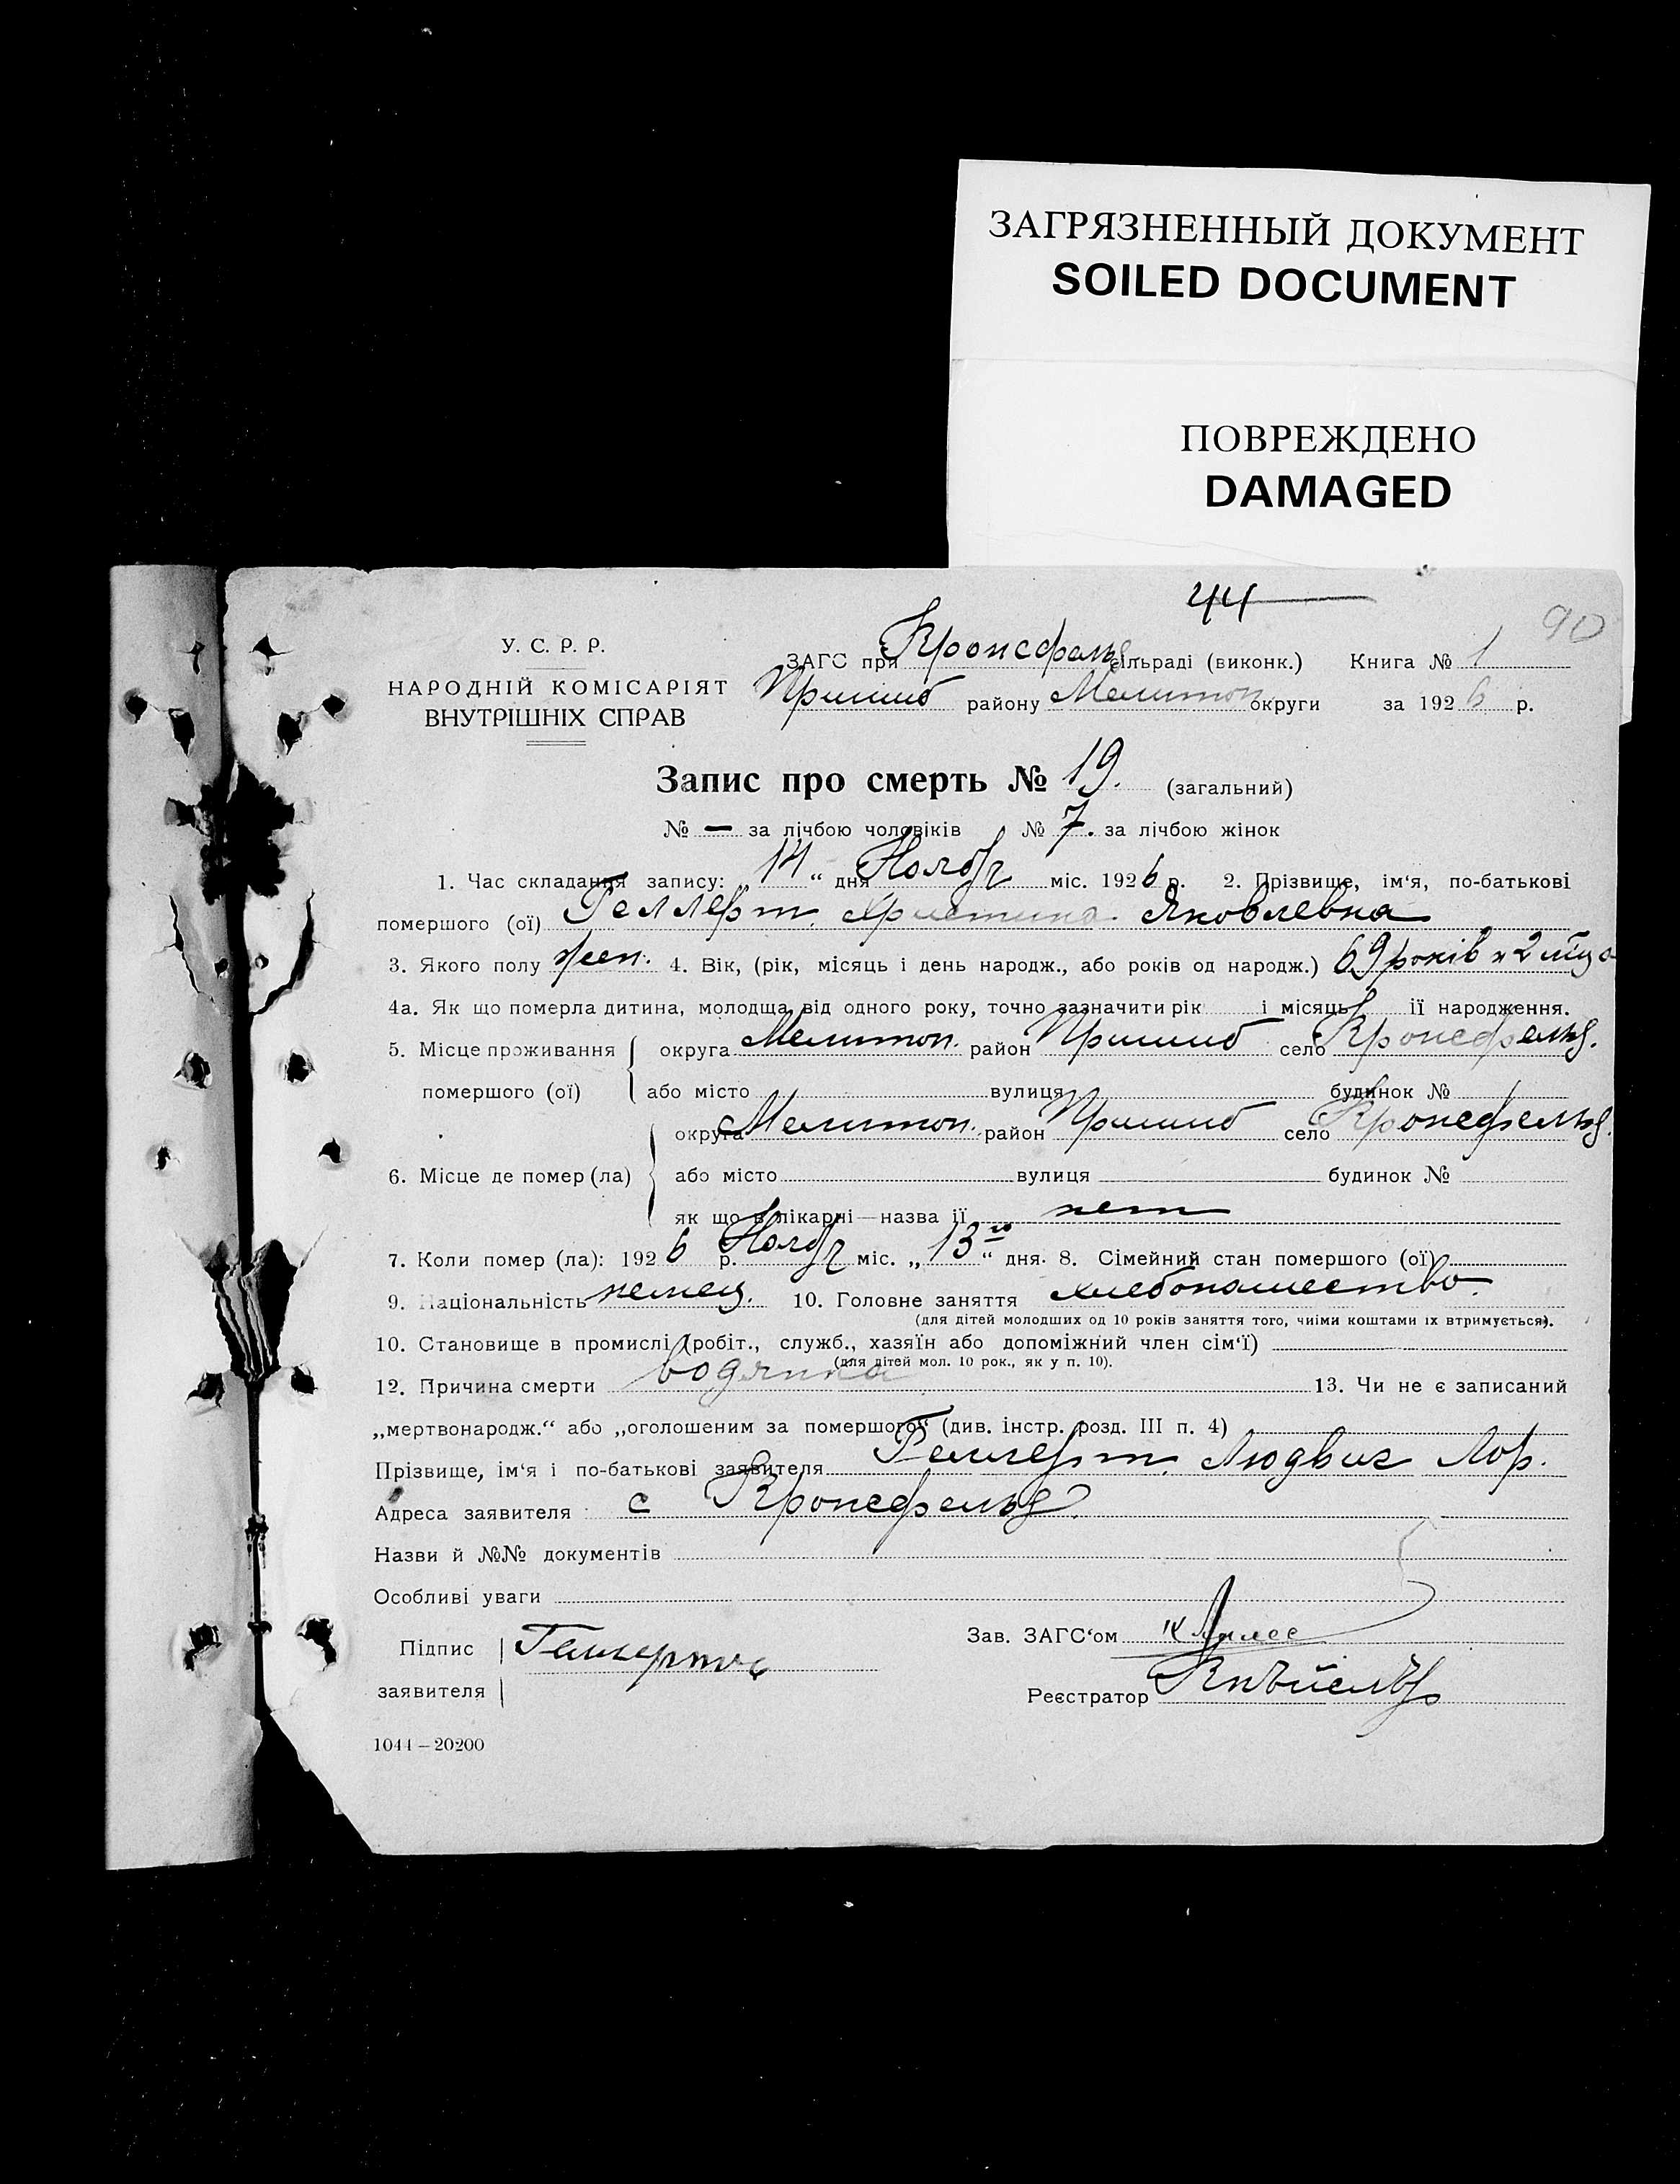 ЗАГРЯЗНЕННЫЙ ДОКУМЕНТ
SOILED DOCUMENT
ПОВРЕЖДЕНО
DAMAGED
44
90
У. С. Р. Р.
НАРОДНІЙ КОМІСАРІЯТ
ВНУТРІШНІХ СПРАВ
ЗАГС при Кронсфельд сільраді (виконк.) Книга № 1
Пришиб району Мелитоп. округи за 1926 р.
Запис про смерть № 19. (загальний)
№ — за лічбою чоловіків № 7. за лічбою жінок
1. Час складання запису: „14“ дня Ноябр міс. 1926 р. 2. Прізвище, ім‘я, по-батькові
помершого (ої) Геллерт Христина Яковлевна
3. Якого полу жен. 4. Вік, (рік, місяць і день народж., або років од народж.) 69 років и 2 м-ца
4а. Як що померла дитина, молодща від одного року, точно зазначити рік і місяць її народження.
5. Місце проживання помершого (ої) округа Мелитоп. район Пришиб село Кронсфельд.
або місто вулиця будинок №
6. Місце де помер (ла) округа Мелитоп. район Пришиб село Кронсфельд.
або місто вулиця будинок №
як що в лікарні—назва її нет
7. Коли помер (ла): 1926 р. Ноябр міс. „13“ дня. 8. Сімейний стан помершого (ої)
9. Національність немец. 10. Головне заняття хлебопашество.
(для дітей молодших од 10 років заняття того, чиїми коштами їх втримується).
10. Становище в промислі (робіт., служб., хазяїн або допоміжний член сім‘ї)
(для дітей мол. 10 рок., як у п. 10).
12. Причина смерти водянка 13. Чи не є записаний
„мертвонародж.“ або „оголошеним за помершого“ (див. інстр. розд. III п. 4)
Прізвище, ім‘я і по-батькові заявителя Геллерт Людвиг Лор.
Адреса заявителя с Кронсфельд.
Назви й №№ документів
Особливі уваги
Підпис заявителя
Зав. ЗАГС‘ом
Реєстратор
1044 – 20200